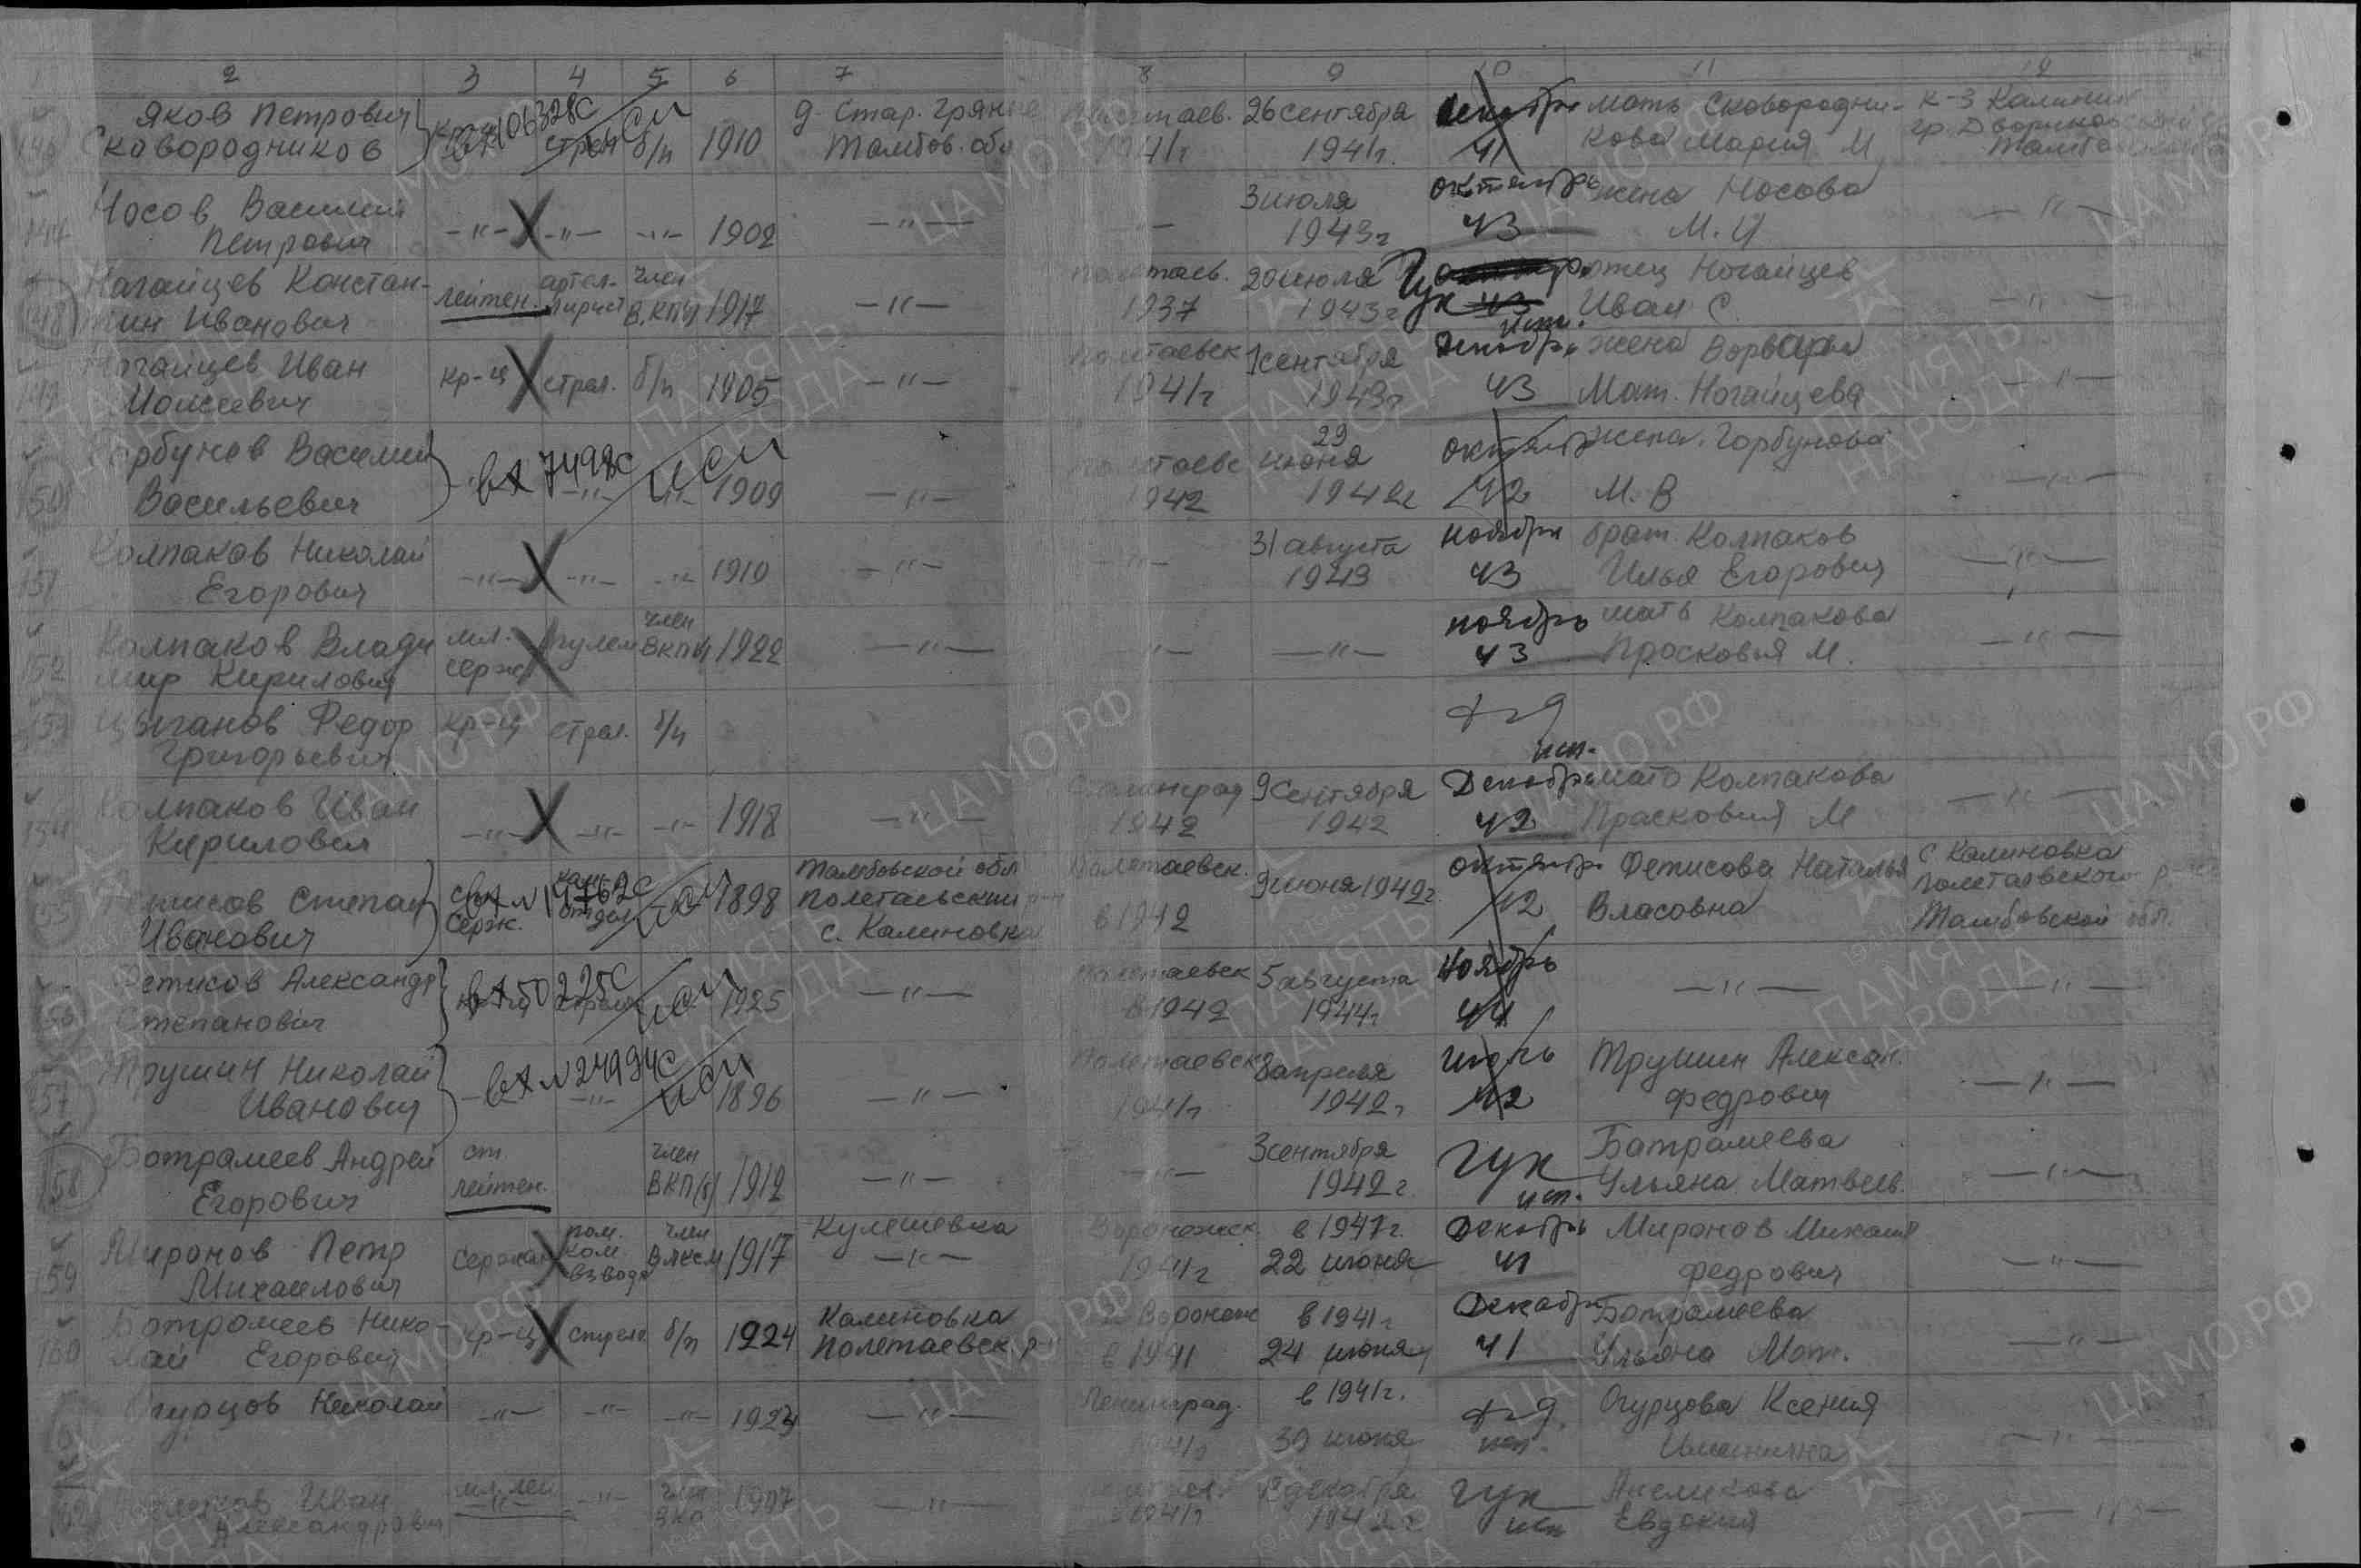 2 3 4 5 6 7 8 9 10 11 12
146 Яков Петрович Сковородников вх 106328с стрел б/п исп 1910 д. Стар. Грязное Тамбов. обл 1941г 26 сентября 1941г. декабрь 41 мать Сковородникова Мария М к-з Калинин Дворико
147 Носов Василий Петрович -"- -"- -"- 1902 -"- -"- 3 июля 1943г октябрь 43 жена Носова М. И -"-
148 Нагайцев Констан-тин Иванович лейтен. артил-лирист член В.КП(б) 1917 -"- Полетаев. 1937 20 июля 1943г ГУК 43 отец Ногайцев Иван С. -"-
149 Ногайцев Иван Моисеевич кр-ц стрел. б/п 1905 -"- Полетаевск 1941г 1 сентября 1943г исп. декабрь 43 жена Ворвара Мат. Ногайцева -"-
150 Горбунов Василий Васильевич вх 7498с -"- исп 1909 -"- Полетаевс 1942 29 июня 1942г октябрь 42 жена. Горбунова М. В -"-
151 Колпаков Николай Егорович -"- -"- -"- 1910 -"- -"- 31 августа 1943 ноябрь 43 брат Колпаков Илья Егорович -"-
152 Колпаков Влади мир Кирилович мл. серж. пулем член ВКП(б) 1922 -"- -"- -"- ноябрь 43 мать Колпакова Просковия М. -"-
153 Цыганов Федор Григорьевич кр-ц стрел. б/п
154 Колпаков Иван Кирилович -"- -"- -"- 1918 -"- Сталинград 1942 9 сентября 1942 исп. Декабрь 42 мать Колпакова Прасковия М -"-
155 Фетисов Степан Иванович серж. вх № 14762с ком. отдел исп 1898 Тамбовской обл Полетаевский р-н с. Калиновка Полетаевск. в 1942 9 июня 1942г. октябрь 42 Фетисова Наталья Власовна с Калиновка Полетаевского р-на Тамбовской обл.
156 Фетисов Александр Степанович вх 50225с исп 1925 -"- Полетаевск в 1942 5 августа 1944г ноябрь 44 -"- -"-
157 Трушин Николай Иванович вх № 24994с -"- исп 1896 -"- Полетаевск 1941г 8 апреля 1942г июль 42 Трушин Алексан. Федрович -"-
158 Ботрамеев Андрей Егорович ст. лейтен. член ВКП(б) 1912 -"- -"- 3 сентября 1942г. ГУК Батрамеева Ульяна Матвеев. -"-
159 Миронов Петр Михаилович сержан пом. ком. взвода член ВЛКСМ 1917 Кулешевка -"- Воронежск. 1941г в 1941г. 22 июня исп. декабрь 41 Миронов Михаил Федрович -"-
160 Ботромеев Нико-лай Егорович кр-ц стрел б/п 1924 Калиновка Полетаевск. р-н г. Воронеж в 1941 в 1941г 24 июня Декабрь 41 Ботромеева Ульяна Мат. -"-
Огурцов Николай -"- -"- -"- 1923 -"- Ленинград. 1941г в 1941г. 30 июня исп. Огурцова Ксения -"-
162 Иван Александрович мл. лей -"- -"- член ВКП 1907 -"- 1941г декабря 1942г ГУК исп Евдокия -"-
ПАМЯТЬ НАРОДА
ЦА МО РФ